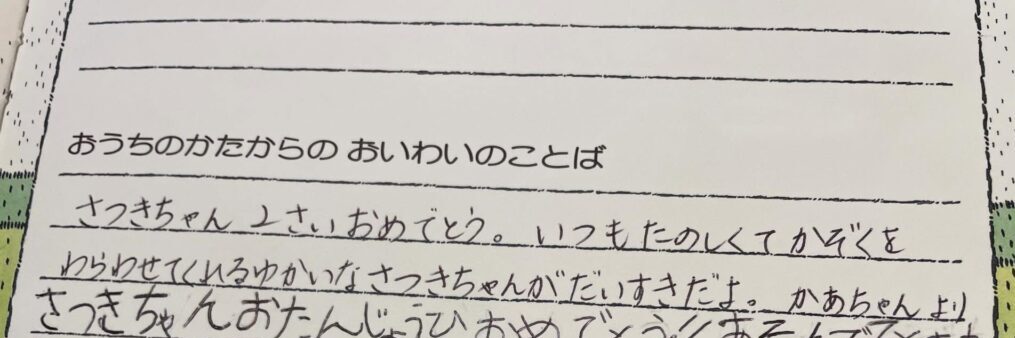 おうちのかたからの おいわいのことば
さつきちゃん 2さいおめでとう。いつもたのしくてかぞくを
わらわせてくれるゆかいなさつきちゃんがだいすきだよ。かあちゃんより
さつきちゃんおたんじょうびおめでとう!!